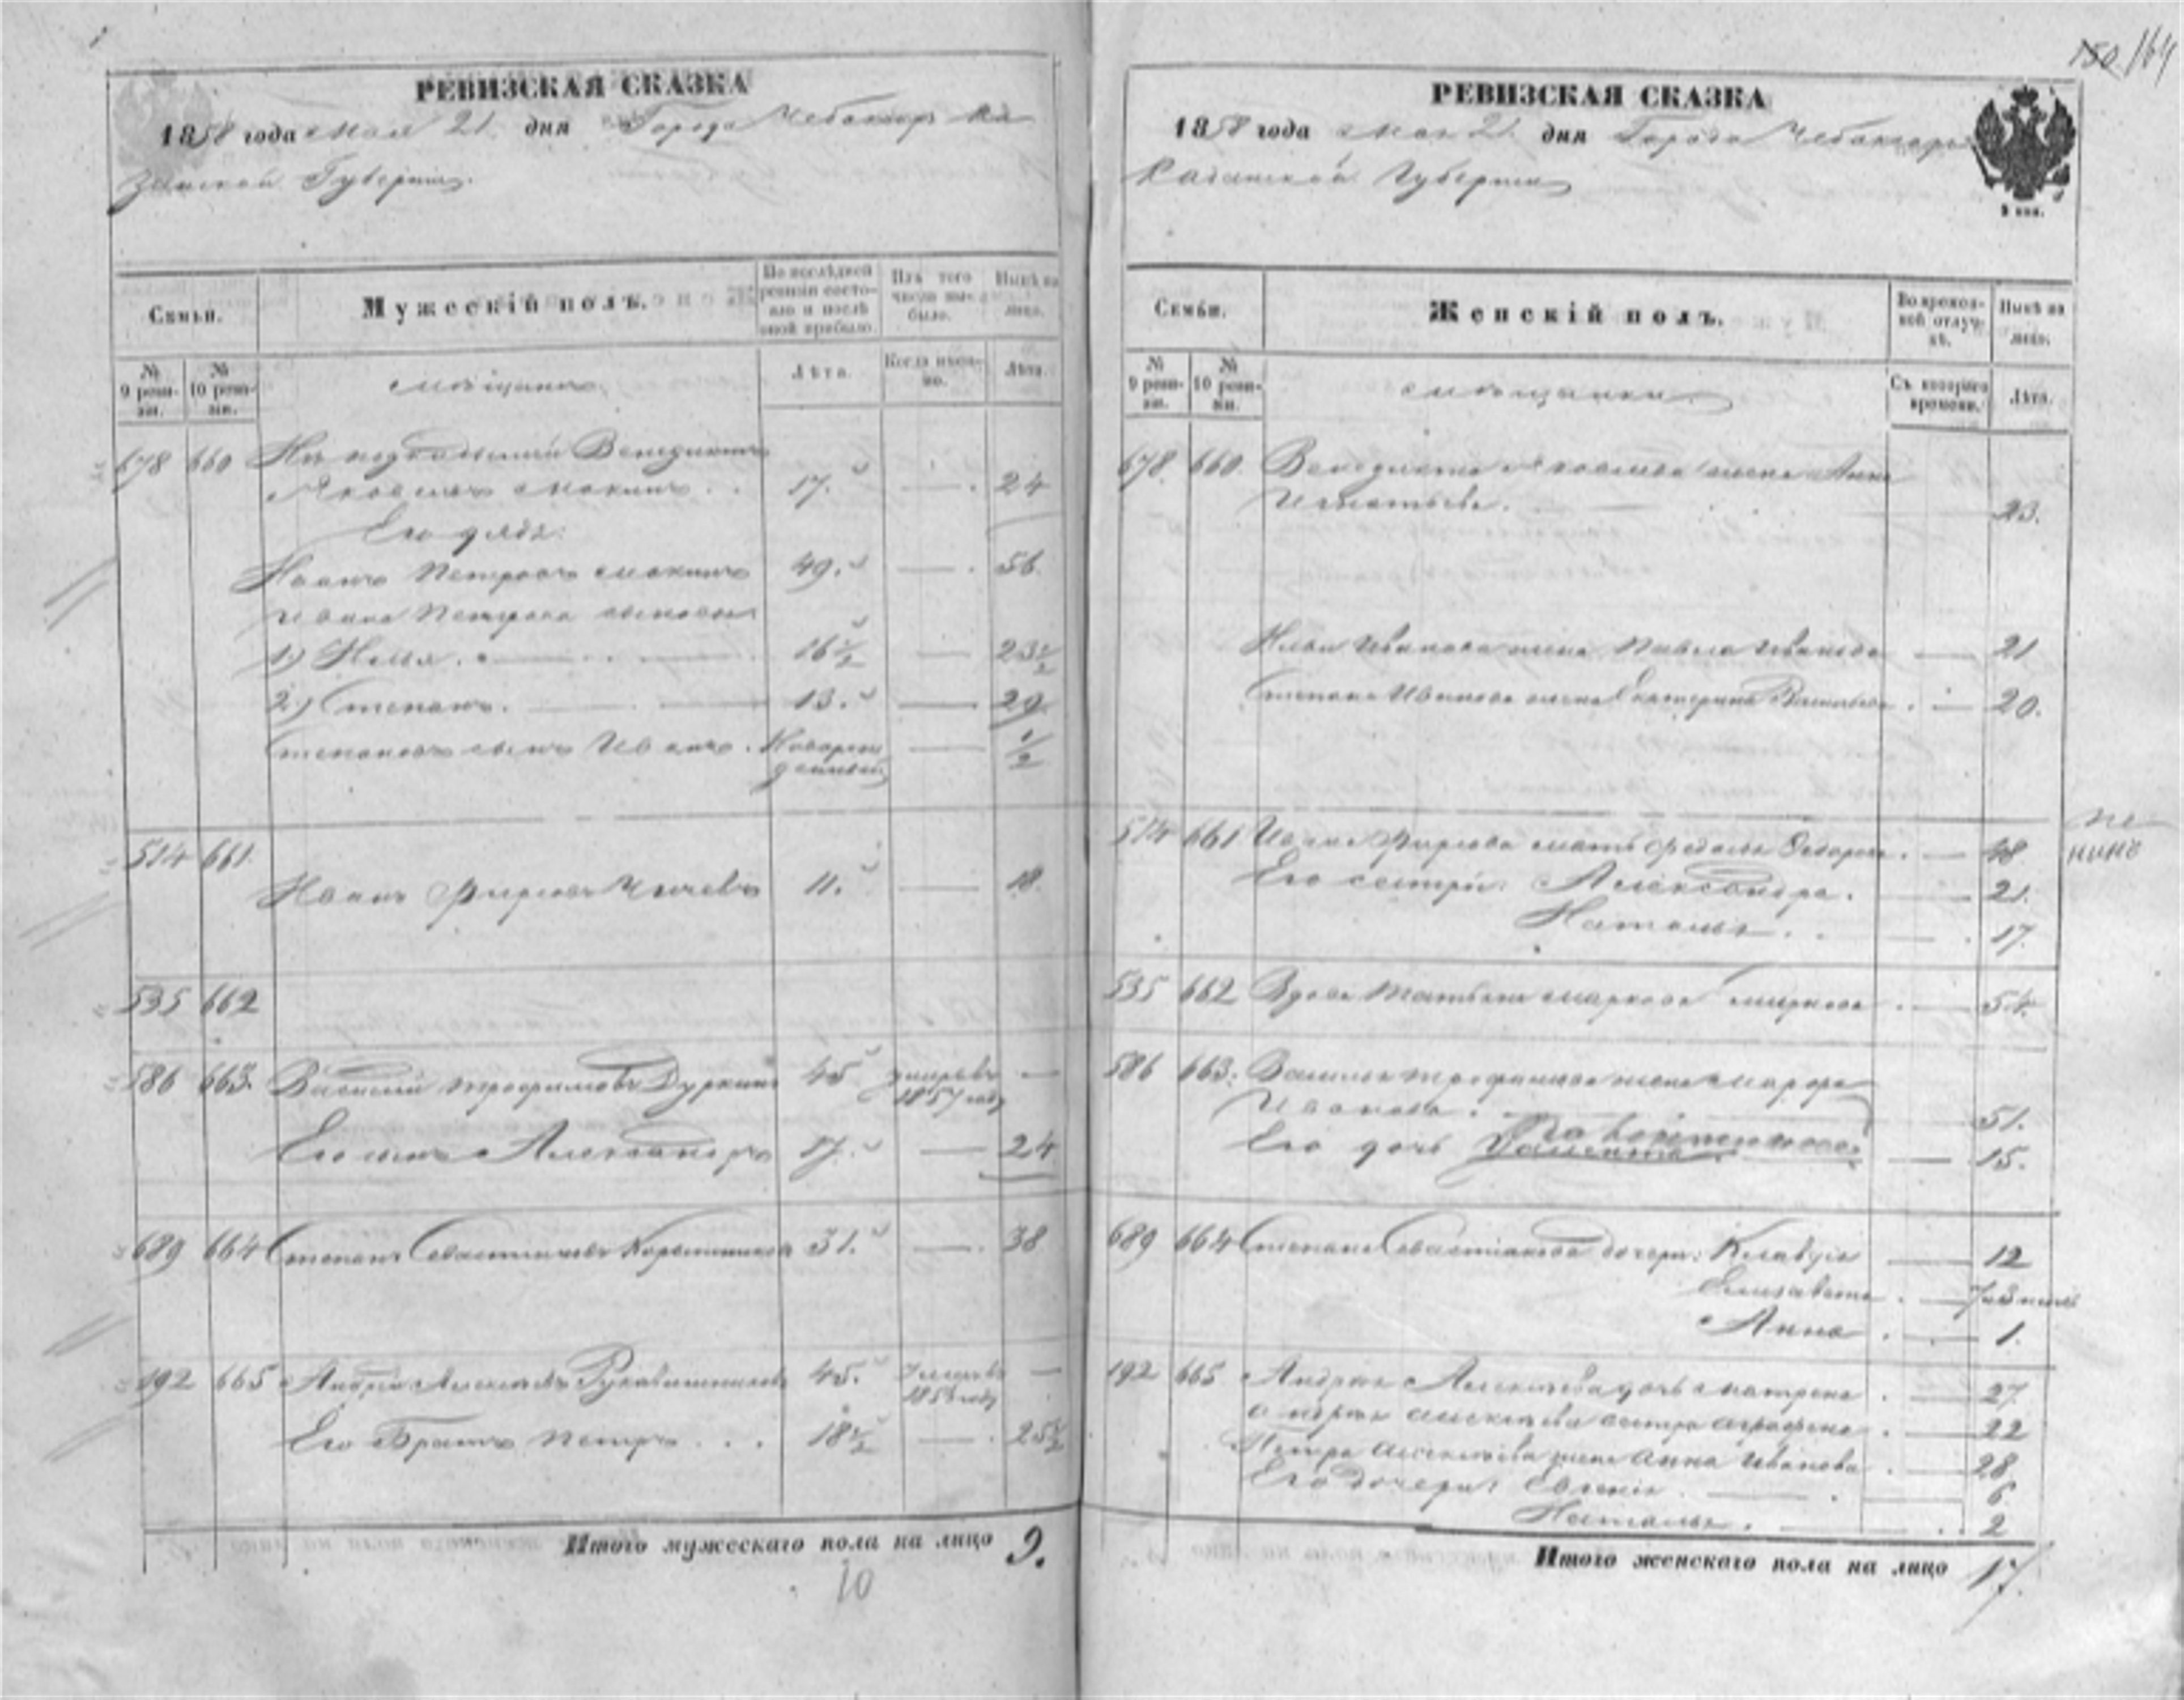 150 164
РЕВИЗСКАЯ СКАЗКА
1858 года мая 21 дня Города Чебоксар Ка
занской Губернии.
Семьи.
Мужескій полъ.
По послѣдней ревизіи состояло и послѣ оной прибыло.
Изъ того числа выбыло.
Нынѣ на лицо.
№ 9 ревизіи.
№ 10 ревизіи.
мѣщане
Лѣта.
Когда именно.
Лѣта.
678 660 Венедиктъ
Яковлевъ Мокинъ . . 17. — 24
Его дядя:
Иванъ Петровъ Мокинъ 49. — 56.
Ивана Петрова сыновья
1.) Илья. — 16 1/2 — 23 1/2
2.) Степанъ. — 13. — 29
Степановъ сынъ Иванъ. Новорож
денный — 1/2
514 661.
Иванъ Фирсовъ 11. — 18.
535 662
586 663. Василий Трофимовъ Дуркинъ 45 умеръ въ 1857 году —
Его сынъ Александръ 17. — 24
689 664 Степанъ Севастьяновъ 31. — 38
192 665 Андрей Алексѣевъ Рукавишниковъ 45. —
Его Братъ Петръ . . . 18 1/2 — 25 1/2
Итого мужескаго пола на лицо 9.
10
РЕВИЗСКАЯ СКАЗКА
1858 года мая 21. дня Города Чебоксаръ
Казанской Губернии
Семьи.
Женскій полъ.
Во временной отлучкѣ.
Нынѣ на лицо.
№ 9 ревизіи.
№ 10 ревизіи.
мѣщанки.
Съ котораго времени.
Лѣта.
678. 660. Венедикта Яковлева жена Анна
Игнатьева. 23.
Ильи Иванова жена Павла Иванова — 21
Степана Иванова жена Екатерина Васильева . — 20.
514 661 Ивана Фирсова мать Федора . — 48
Его сестры: Александра. — 21.
Наталья . . — 17.
535 662 Вдова Татьяна Маркова . — 54.
586 663. Василья Трофимова жена Марфа
Иванова. 51.
Его дочь — 15.
689 664 Степана Севастьянова дочери: Клавдія — 12
Елизавета . —
Анна . — 1.
192 665 Андрея Алексѣева дочь Матрена . — 27
Андрея Алексѣева сестра Аграфена . — 22
Петра Алексѣева жена Анна Иванова . — 28
Его дочери: Евгенія — 6
Наталья. — 2
Итого женскаго пола на лицо 17.